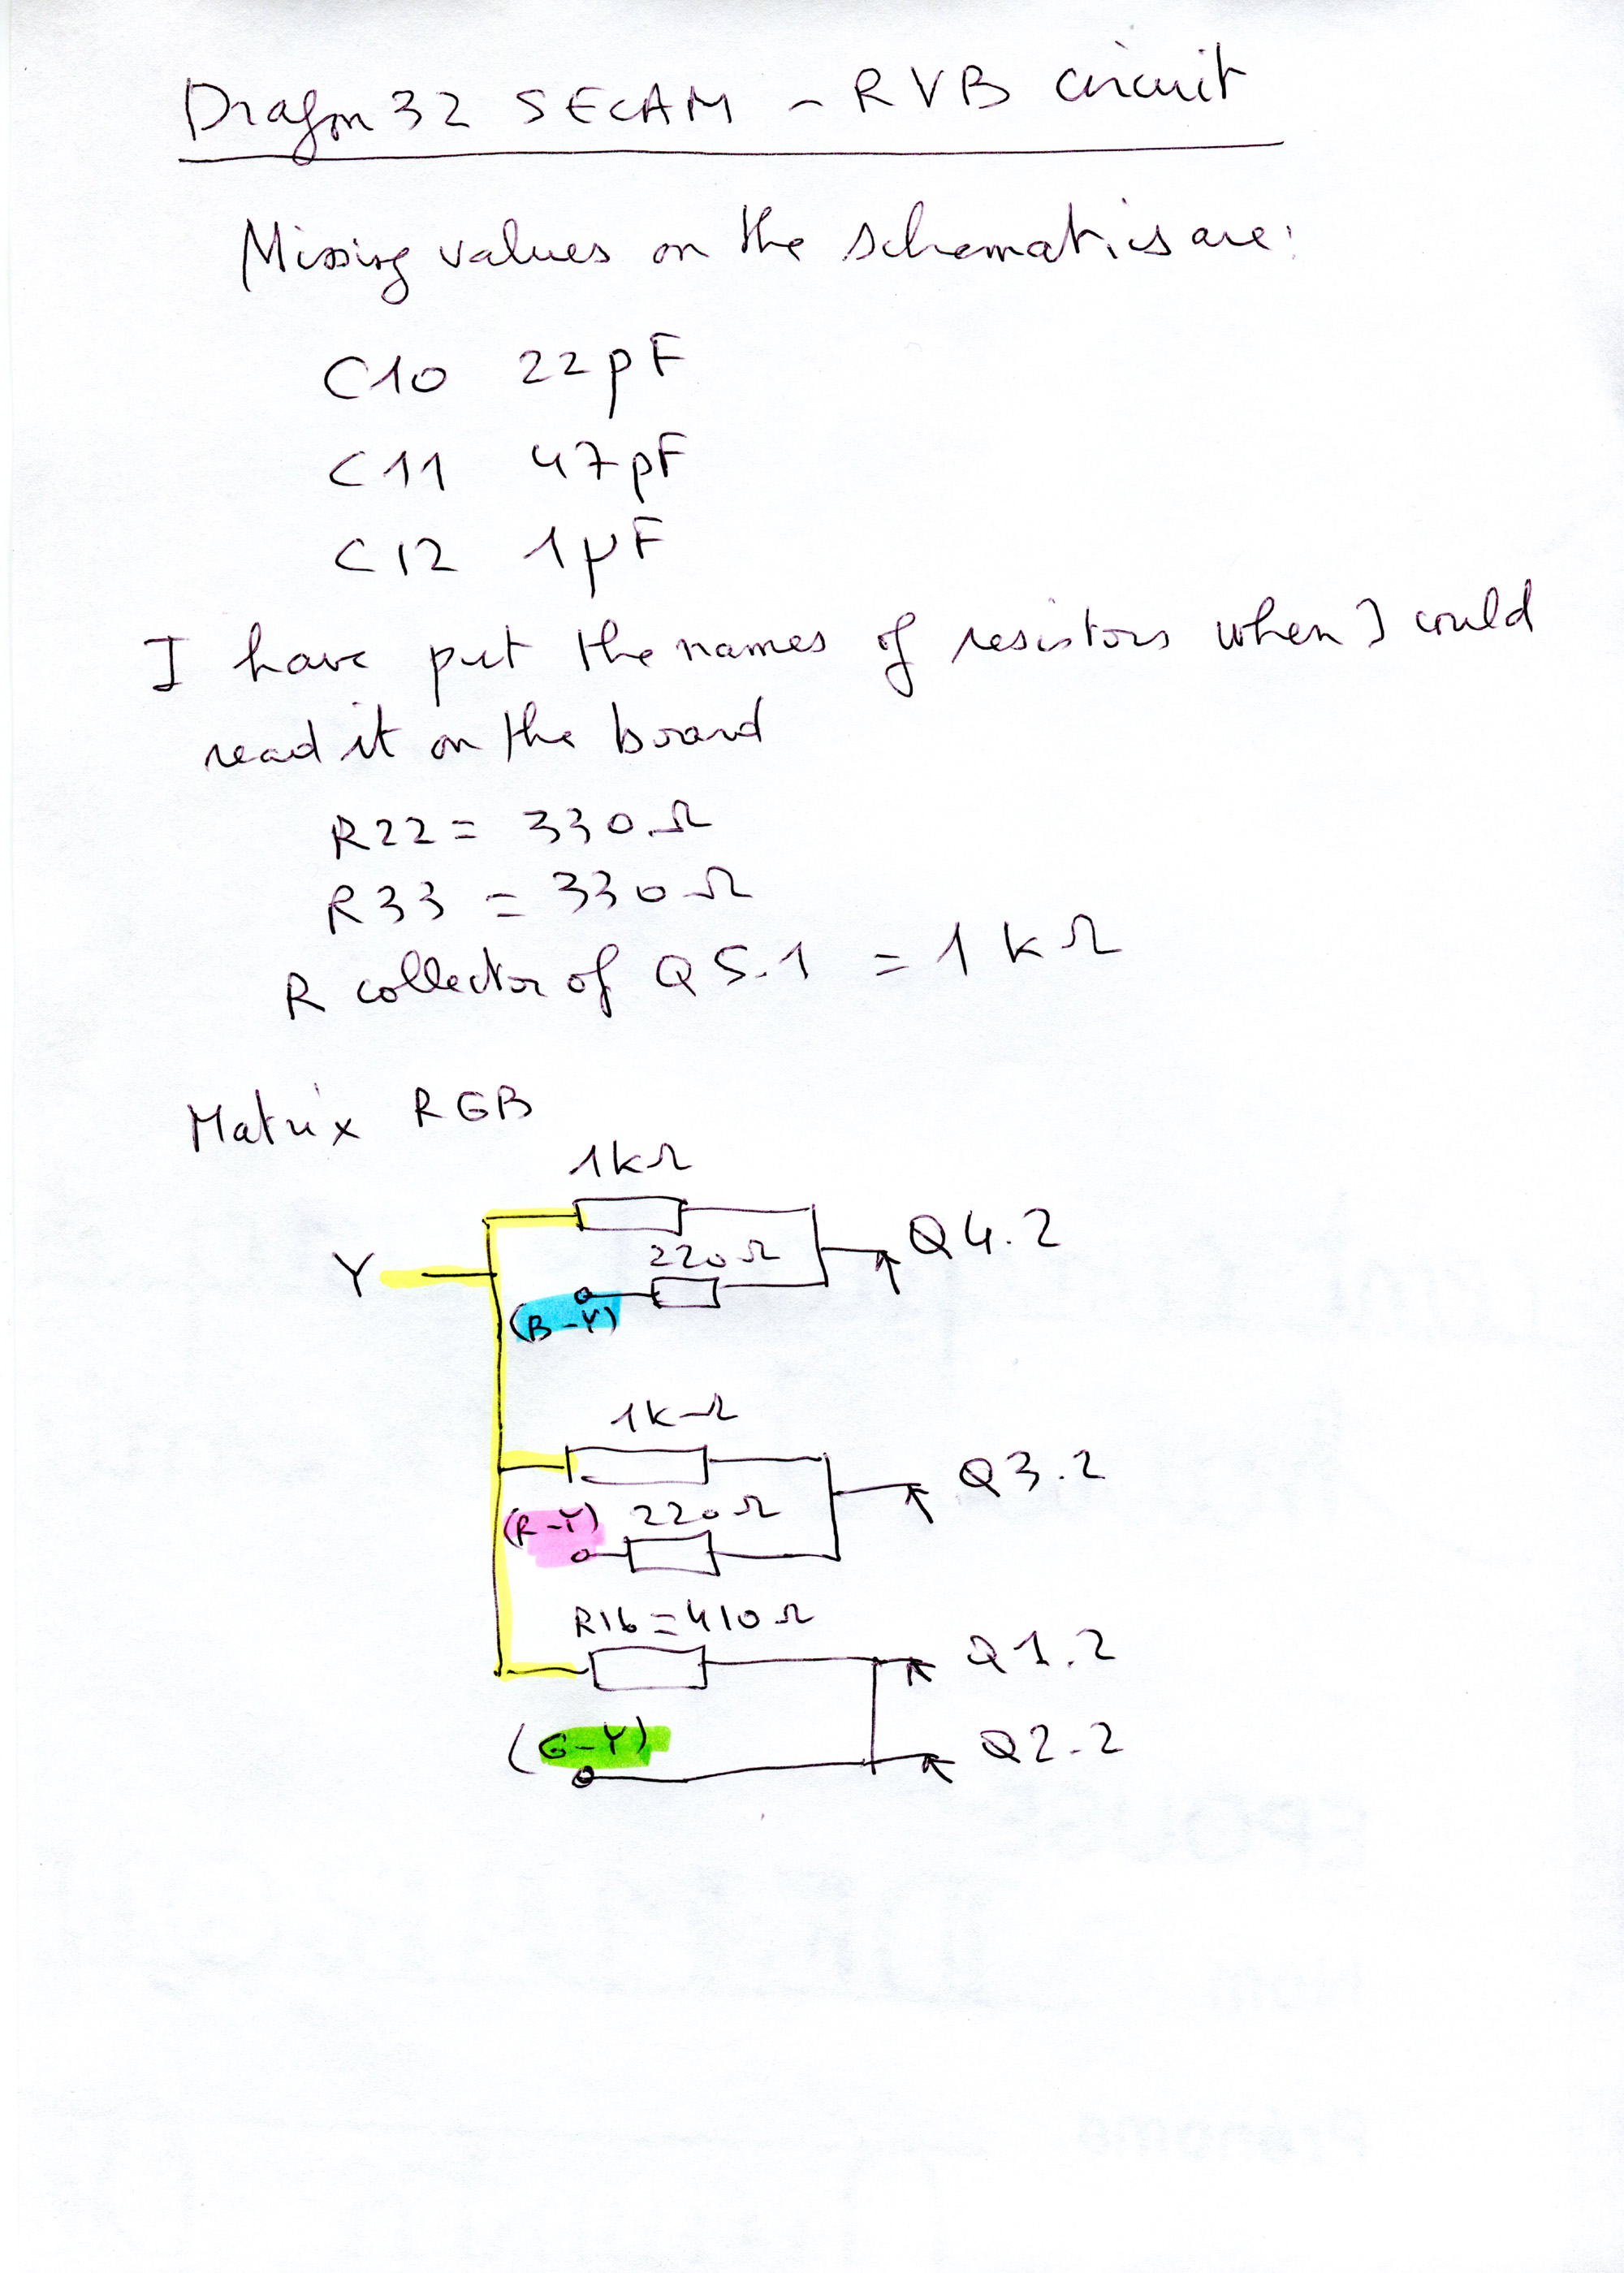 Dragon 32 SECAM - RVB circuit
Missing values on the schematics are:
C10 22pF
C11 47pF
C12 1µF
I have put the names of resistors when I could
read it on the board
R22 = 330Ω
R33 = 330Ω
R collector of Q5.1 = 1kΩ
Matrix RGB
1kΩ
Y
220Ω
Q4.2
(B-Y)
1kΩ
Q3.2
(R-Y)
220Ω
R16=410Ω
Q1.2
(G-Y)
Q2.2